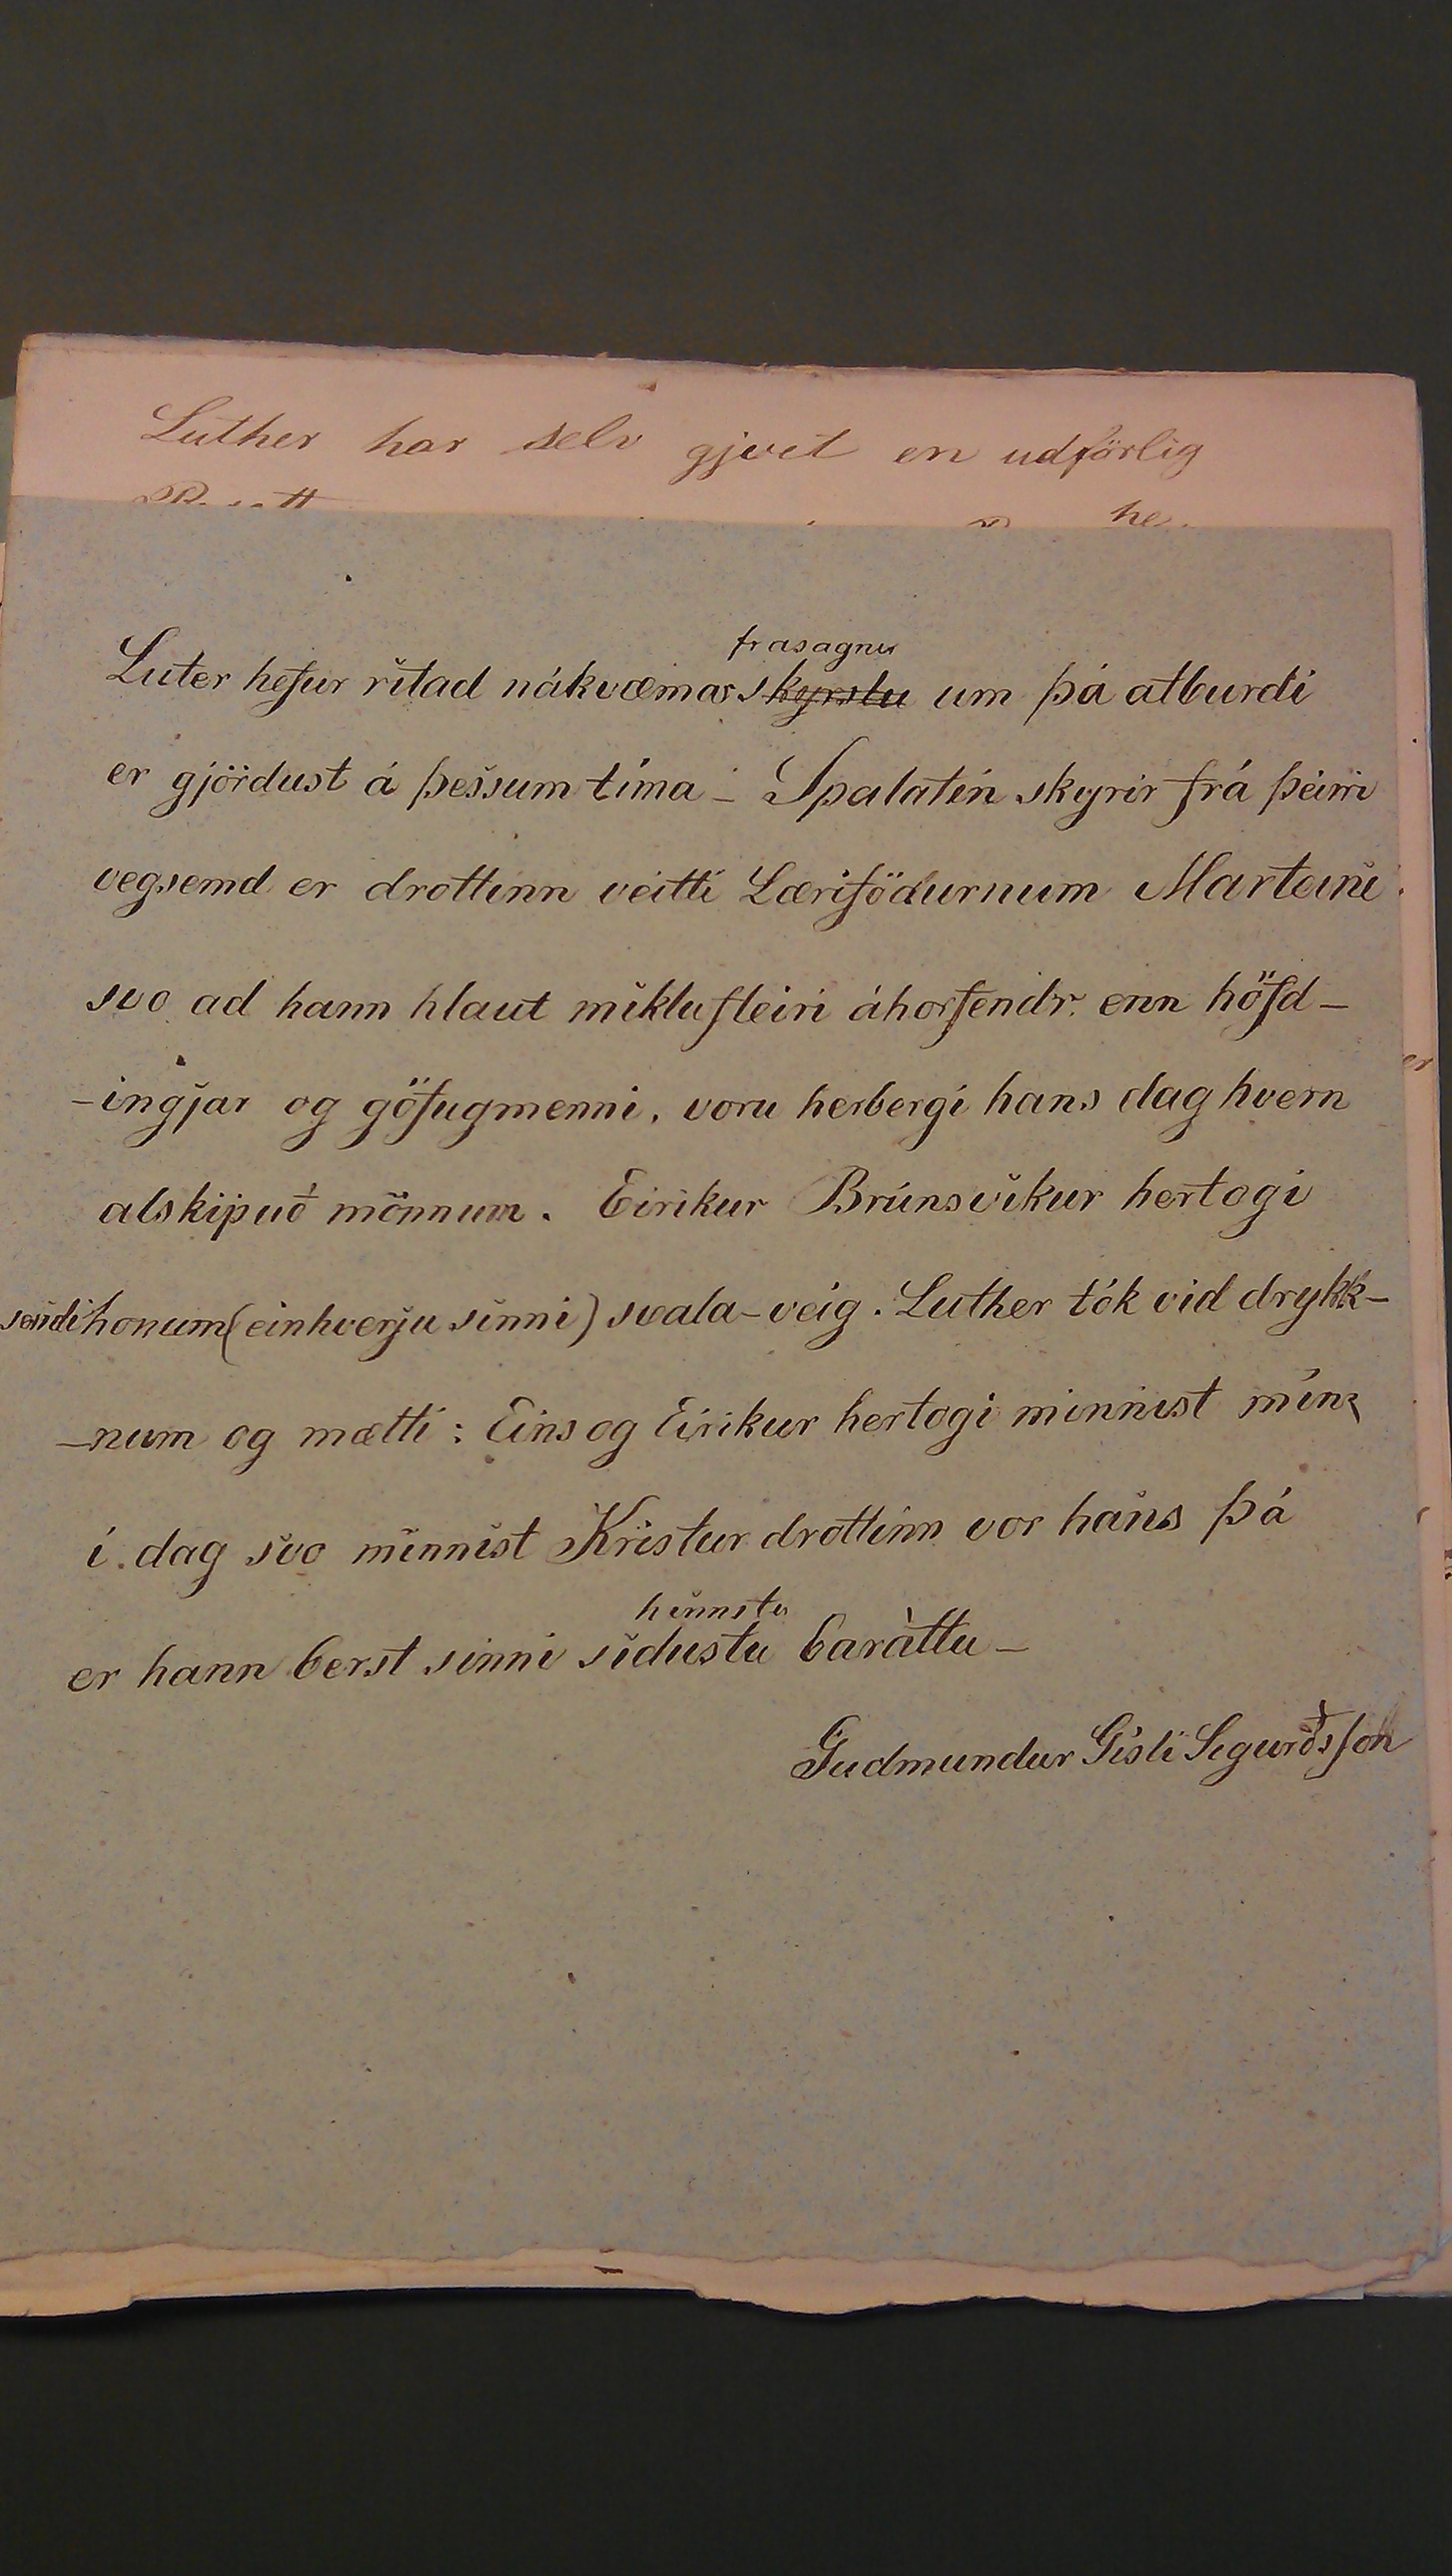 Luther har selv gjvet en udförlig
frasagnir
Luter hefur ritad nákvæmar skyrslu um þá atburdi
er gjördust á þessum tíma – Spalatin skyrir frá þeirri
vegsemd er drottinn veitti Lærifödurnum Marteini
svo ad hann hlaut miklufleiri áhorfendr enn höfd-
-ingjar og göfugmenni, voru herbergi hans dag hvern
alskipuð mönnum. Eirikur Brúnsvikur hertogi
sendi honum (einhverju sinni) svala-veig. Luther tók vid drykk-
-num og mætti: Eins og Eirikur hertogi minnist mín
í dag svo minnist Kristur drottinn vor hans þá
hinnstu
er hann berst sinni sidustu baràttu –
Gudmundur Gísli Sigurðsson